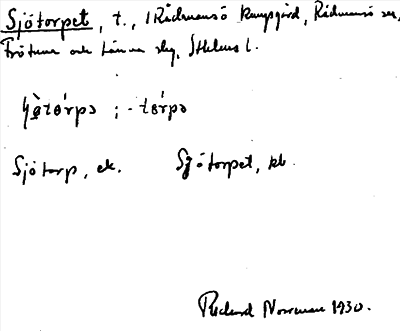 Sjötorpet, t., Rådmansö kungsgård, Rådmansö sn,
Frötuna och Länna skg, Sthlms l.
Sjötorp, ek. Sjötorpet, kb
Richard Norrman 1930.